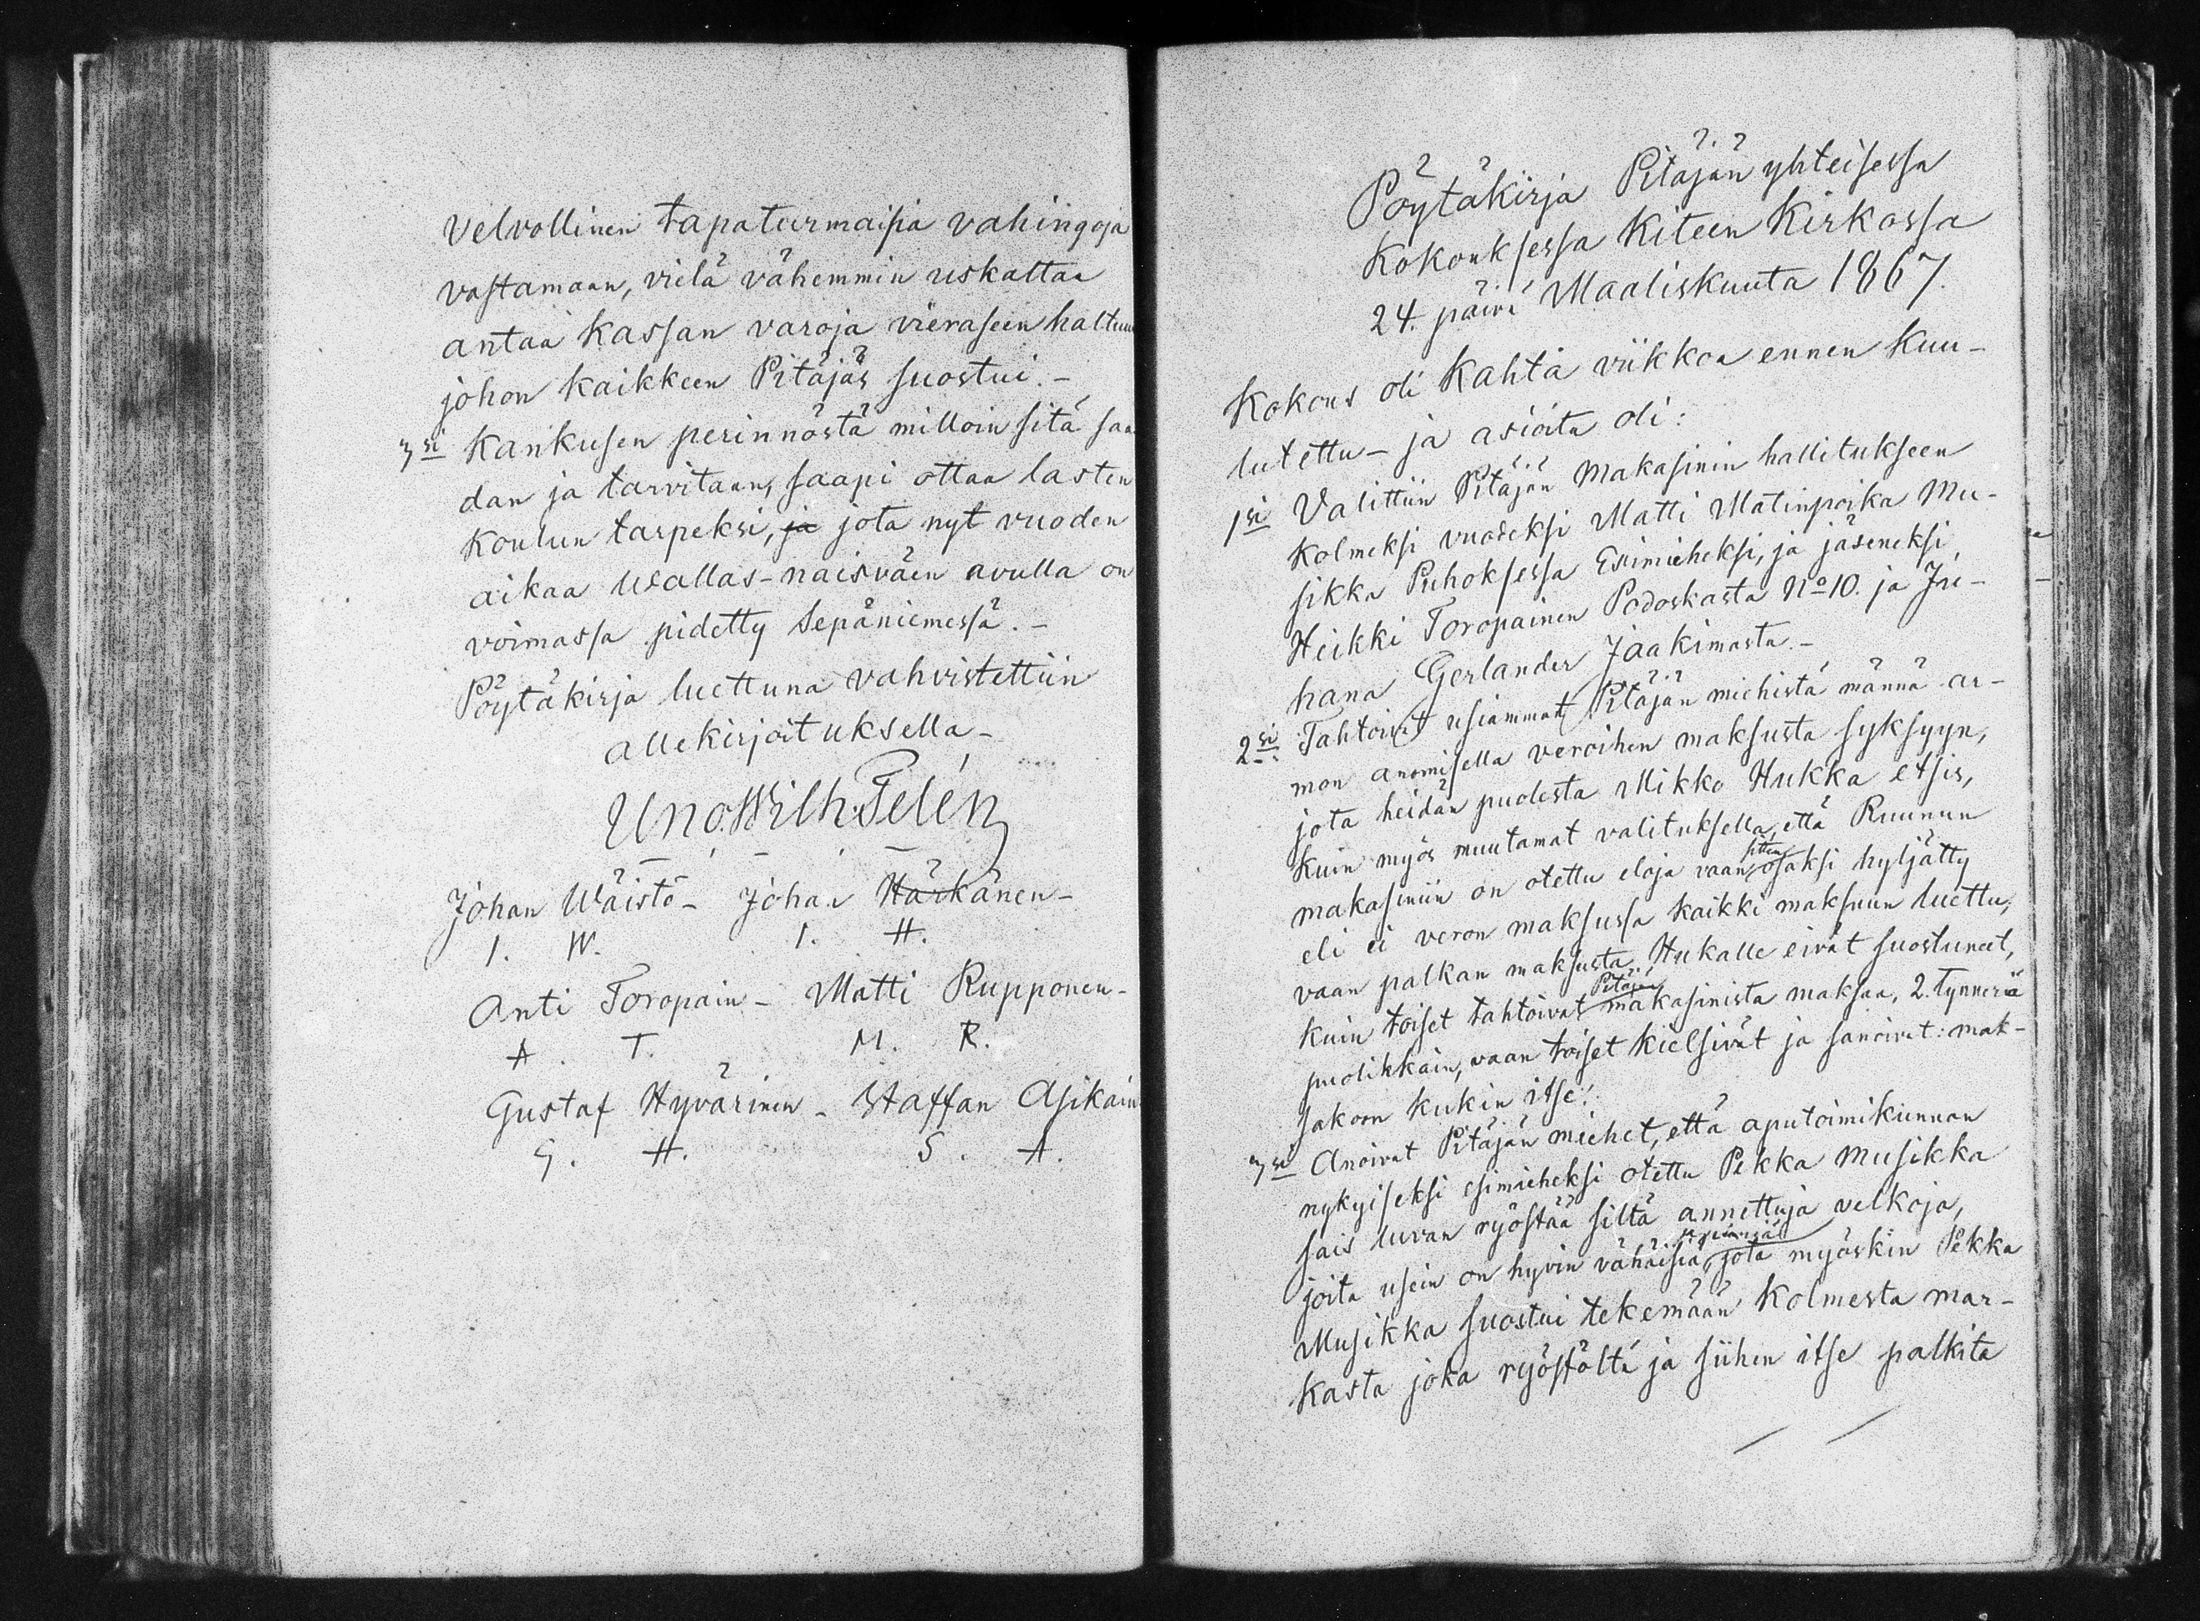 velvollinen tapaturmaisia vahingoja
vastamaan, vielä vähemmin uskaltaa
antaa kassan varoja vieraseen haltuu
johon kaikkeen Pitäjäs suostui. -
3si Kankusen perinnöstä milloin sitä saa
dan ja tarvitaan, saapi ottaa lasten
koulun tarpeksi, ja jota nyt vuoden
aikaa Wallas-naisväen avulla on
voimassa pidetty Sepäniemessä. -
Pöytäkirja luettuna vahvistettiin
allekirjoituksella -
Uno Wilh. Telén
Johan Wäistö - Johan Härkänen -
I. W. I. H.
Anti Toropain - Matti Rupponen -
A. T. M. R.
Gustaf Hyvärinen - Staffan Asikain
G. H. S. A.
Pöytäkirja Pitäjän yhteisessa
Kokouksessa Kiteen Kirkossa
24. päivä Maaliskuuta 1867.
Kokous oli kahta viikkoa ennen kuu-
lutettu - ja asioita oli:
1si Valittiin Pitäjän Makasinin hallitukseen
kolmeksi vuodeksi Matti Matinpoika Mu-
sikka Puhoksessa Esimieheksi, ja jäseneksi,
Heikki Toropainen Podoskasta No 10. ja Ju-
hana Gerlander Jaakimasta. -
2si: Tahtoivat usiammat Pitäjän miehistä männä ar-
mon anomisella veroihen maksusta syksyyn,
jota heidän puolesta Mikko Hukka etsis,
kuin myös muutamat valituksella, että Ruunun
makasiniin on otettu eloja vaan sitten osaksi hyljätty
eli ei veron maksussa kaikki maksuun luettu,
vaan palkan maksusta Hukalle eivät suostuneet,
kuin toiset tahtoivat Pitäjän makasinista maksaa, 2. Tynneriä
puolikkain, vaan toiset kielsivät ja sanoivat: mak-
sakoon kukin itse:.
3si Anoivat Pitäjän miehet, että aputoimikunnan
nykyiseksi esimieheksi otettu Pekka Musikka
sais luvan ryöstää siltä annettuja velkoja,
joita usein on hyvin vähäisiä, jota myöskin Pekka
Musikka suostui tekemään kolmesta mar-
kasta joka ryöstöltä ja siihen itse palkita